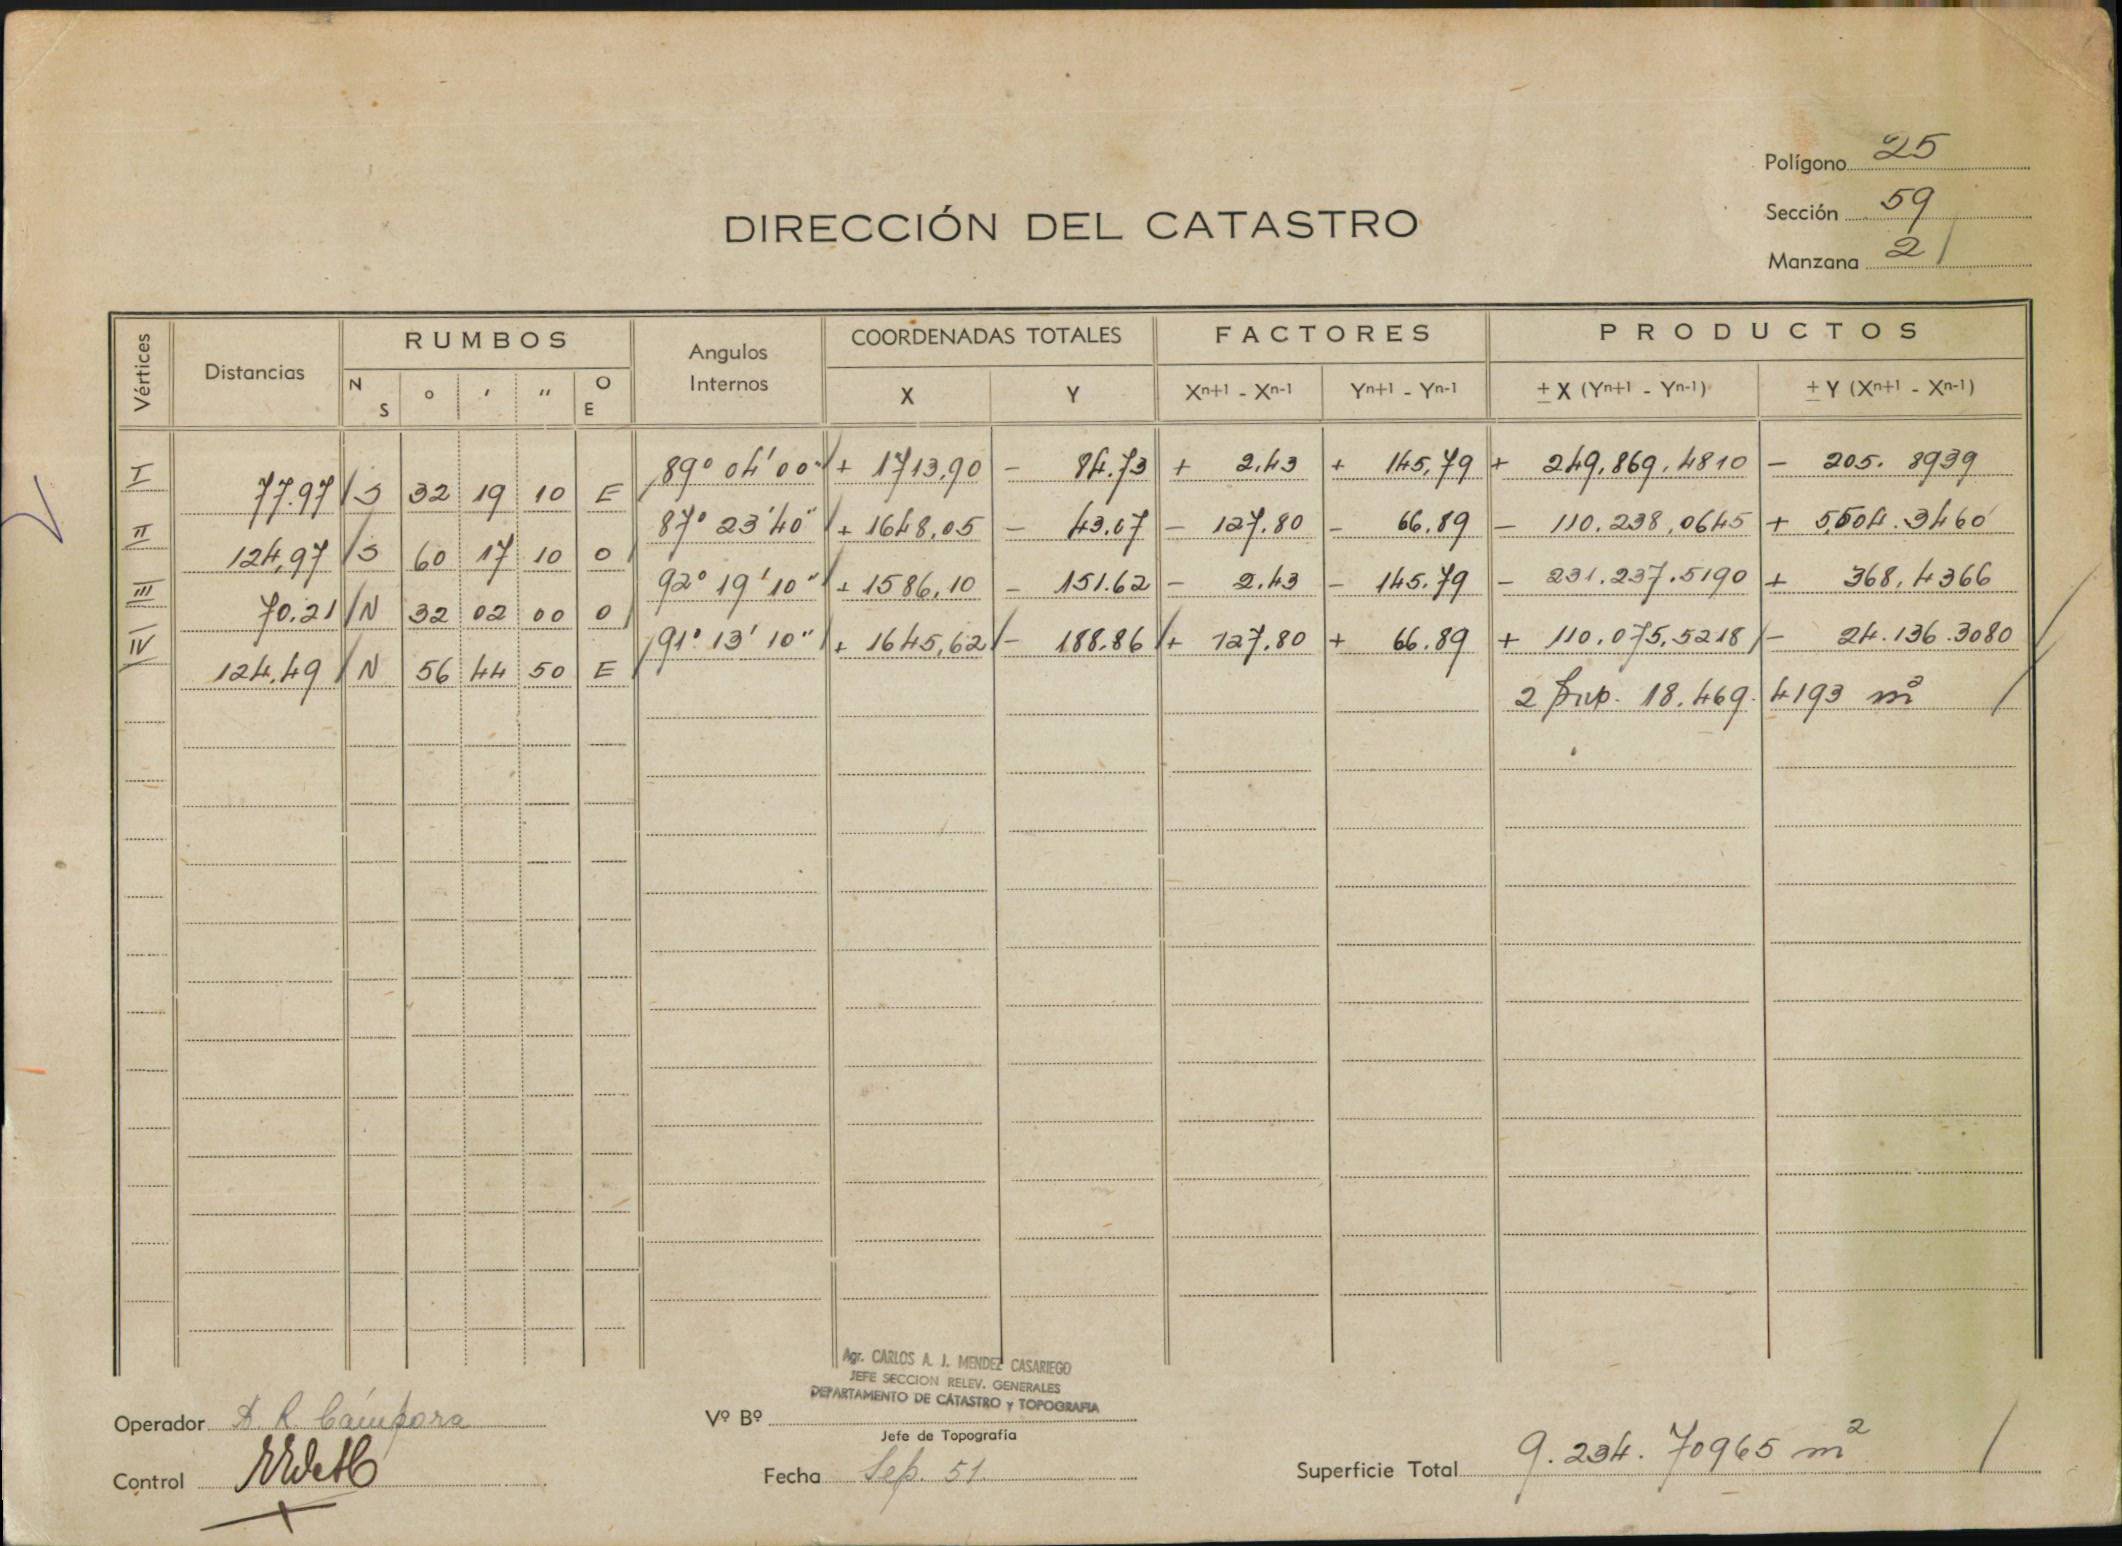 Polígono 25
Sección 59
Manzana 2
DIRECCIÓN DEL CATASTRO
Vértices Distancias RUMBOS Angulos Internos COORDENADAS TOTALES FACTORES PRODUCTOS
N S o ' " O E X Y Xn+1 - Xn-1 Yn+1 - Yn-1 ± X (Yn+1 - Yn-1) ± Y (Xn+1 - Xn-1)
I 89° 04' 00" + 1713,90 - 84.73 + 2.43 + 145,79 + 249.869.4810 - 205.8939
77.97 S 32 19 10 E
II 87° 23' 40" + 1648,05 - 43.07 - 127.80 - 66.89 - 110.238,0645 + 5,504.3460
124,97 S 60 17 10 O
III 92° 19' 10" + 1586,10 - 151.62 - 2.43 - 145.79 - 231.237.5190 + 368,4366
70.21 N 32 02 00 O
IV 91° 13' 10" + 1645,62 - 188.86 + 127.80 + 66.89 + 110.075,5218 - 24.136.3080
124.49 N 56 44 50 E
2 Sup. 18.469.4193 m²
Agr. CARLOS A. J. MENDEZ CASARIEGO
JEFE SECCION RELEV. GENERALES
DEPARTAMENTO DE CATASTRO y TOPOGRAFIA
Operador A. R. Cámpora
Vº Bº
Jefe de Topografía
Control
Fecha Sep. 51.
Superficie Total 9.234.70965 m²